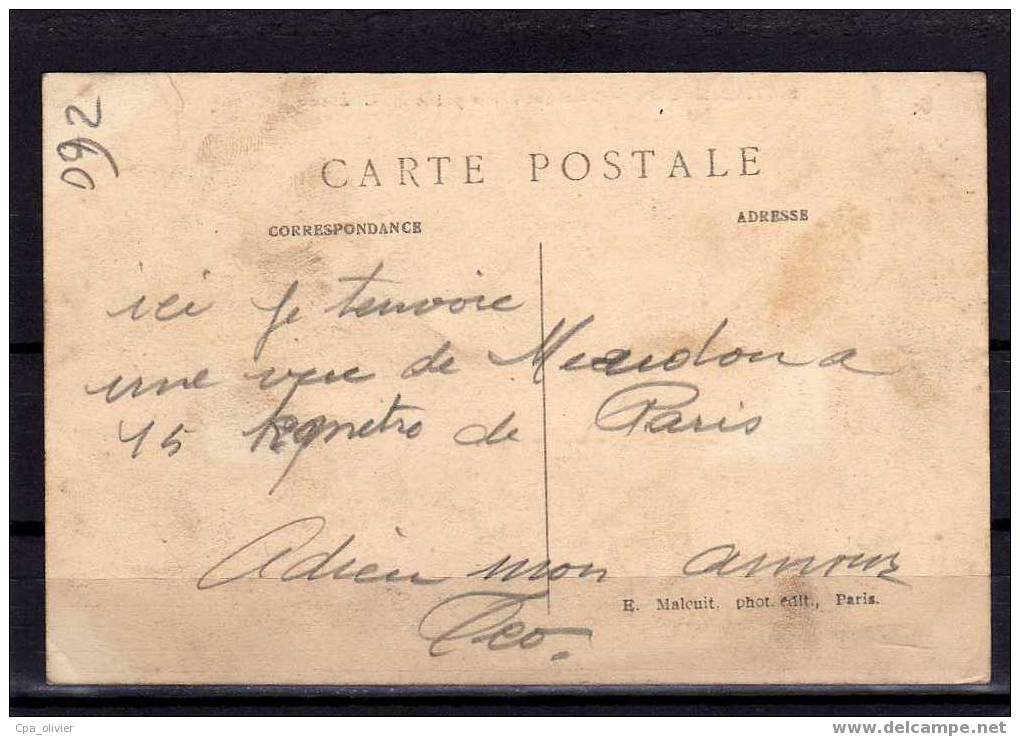 092
CARTE POSTALE
CORRESPONDANCE
ADRESSE
ici je tenvoie
une vue de Meudon a
15 de Paris
Adieu mon amour
Leo.
E. Malcuit, phot. édit., Paris.
Cpa_olivier
www.delcampe.net